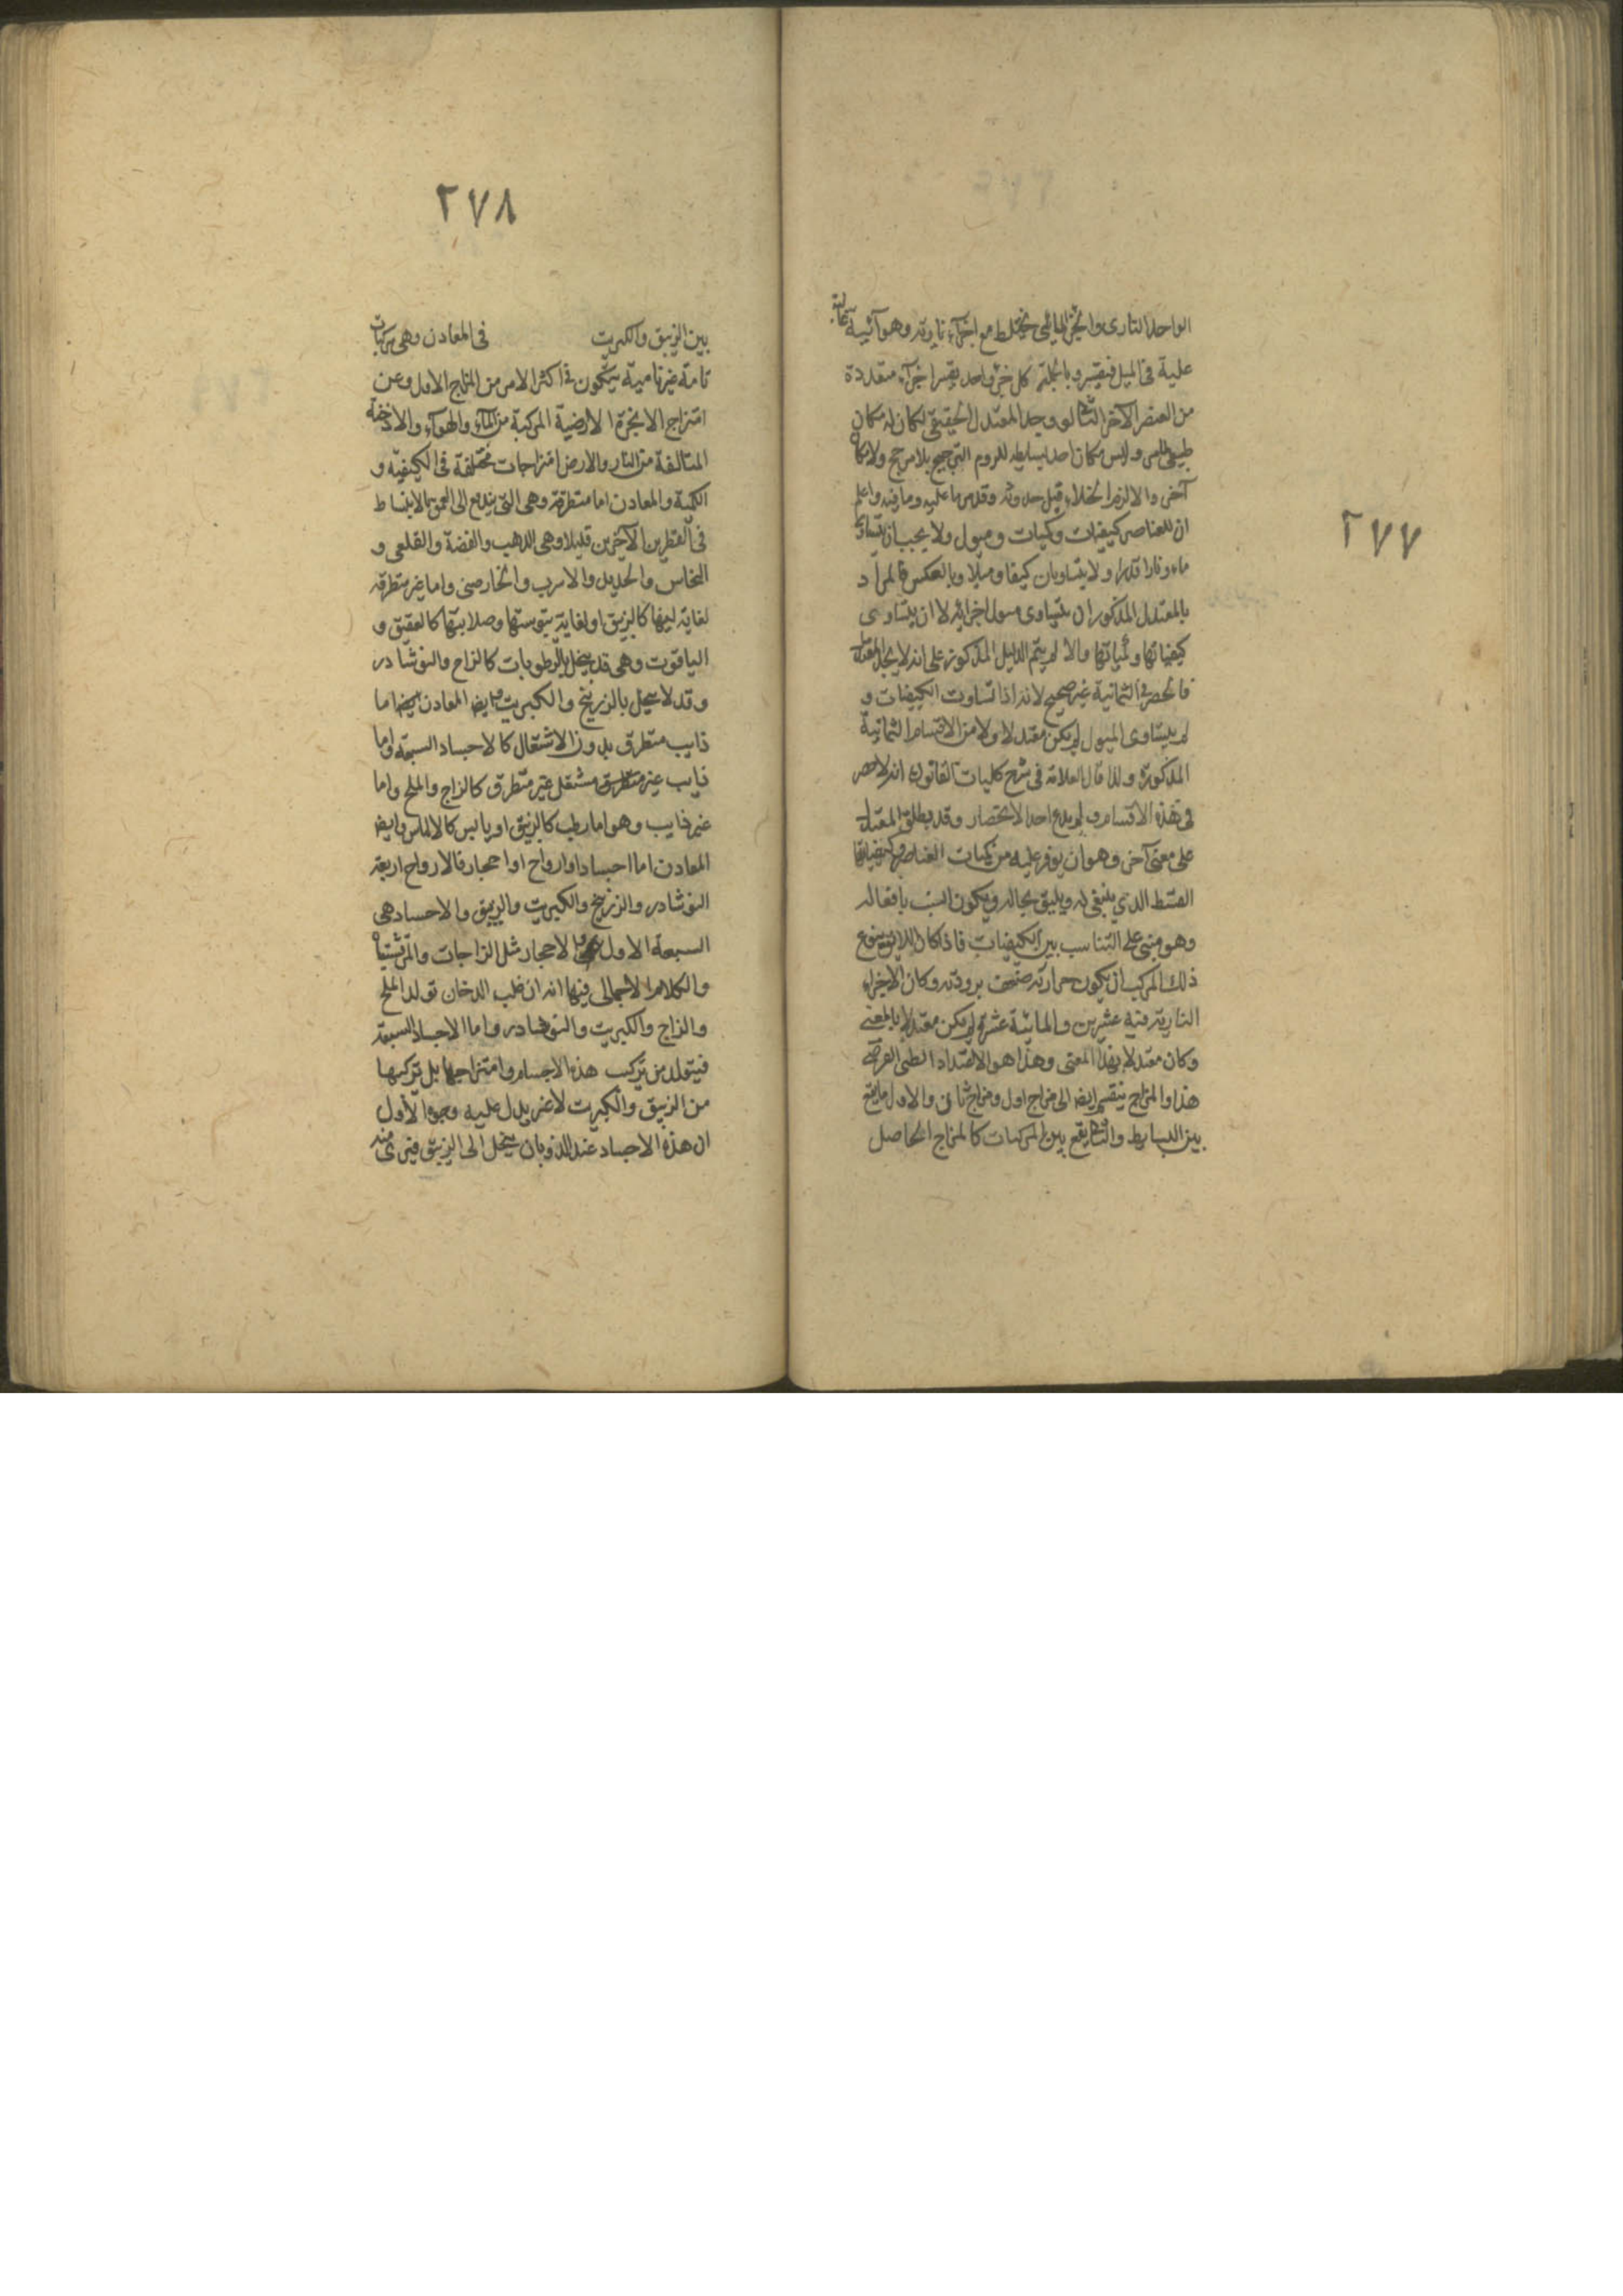 ٢٧٧
الواحد الناري والجزء المائي يختلط مع اجزاء نارية وهوائية
عليه في الميل فيقسر وبالجملة كل جزء واحد يقسر اجزاء متعددة
من العنصر الآخر الثا لو وجد المعتدل الحقيقي لكان له مكان
طبيعي لما مر وليس مكان احد بسايطه للزوم الترجيح بلا مرجح ولا مكان
آخر والا لزم الخلاء قبل حدوثه وقد مر ما عليه وما فيه واعلم
ان للعناصر كيفيات وكميات وميول ولا يجب ان تساوى
ماء ونارا قدرا ولا يتساويان كيفا وميلا وبالعكس فالمراد
بالمعتدل المذكور ان يتساوى ميول اجزائه لا ان يتساوى
كيفياتها وكمياتها والا لم يتم الدليل المذكور على انه لا يوجد المعتدل
فالحصر في الثمانية غير صحيح لانه اذا تساوت الكيفيات و
لم يتساوى الميول لم يكن معتدلا ولا من الاقسام الثمانية
المذكورة ولذا قال العلامة في شرح كليات القانون انه لا حصر
في هذه الاقسام ولم يدع احد الانحصار وقد يطلق المعتدل
على معنى آخر وهو ان يوفر عليه من كميات العناصر وكيفياتها
القسط الذي ينبغي له ويليق بحاله ويكون انسب بافعاله
وهو مبني على التناسب بين الكيفيات فاذا كان اللايق بنوع
ذلك المركب ان يكون حرارته ضعف برودته وكان الاجزاء
النارية فيه عشرين والمائية عشرة لم يكن معتدلا بالمعنى
وكان معتدلا بهذا المعنى وهذا هو الاعتداد الطبى الفرضى
هذا والمزاج ينقسم ايضا الى مزاج اول ومزاج ثان والاول ما يقع
بين البسايط والثا يقع بين المركبات كالمزاج الحاصل
٢٧٨
بين الزيبق والكبريت في المعادن وهي مركبات
تامة غير نامية يتكون في اكثر الامر من المزاج الاول وعن
امتزاج الابخرة الارضية المركبة من الماء والهواء والادخنة
المتالفة من النار والارض امتزاجات مختلفة في الكيفية و
الكمية والمعادن اما متطرقة وهي التي يندفع الى العمق بالانبساط
في القطرين الآخرين قليلا وهي الذهب والفضة والقلعي و
النحاس والحديد والاسرب والخارصيني واما غير متطرقة
لغاية لينها كالزيبق او لغاية يبوستها وصلابتها كالعقيق و
الياقوت وهي قد ينحل بالرطوبات كالزاج والنوشادر
وقد لا ينحل بالزرنيخ والكبريت وايضا المعادن ايضا اما
ذايب متطرق بدون الاشتعال كالاجساد السبعة واما
ذايب غير متطرق مشتعل غير متطرق كالزاج والملح واما
غير ذايب وهو اما رطب كالزيبق او يابس كالالماس وايضا
المعادن اما اجساد او ارواح او احجار فالارواح اربعة
النوشادر والزرنيخ والكبريت والزيبق والاجساد هي
السبعة الاول والاحجار مثل الزاجات والمرقشيثا
والكلام الاجمالي فيها انه ان غلب الدخان تولد الملح
والزاج والكبريت والنوشادر واما الاجساد السبعة
فيتولد من تركيب هذه الاجسام وامتزاجها بل تركبها
من الزيبق والكبريت لا غير يدل عليه وجوه الاول
ان هذه الاجساد عند الذوبان ينحل الى الزيبق فيرى منه